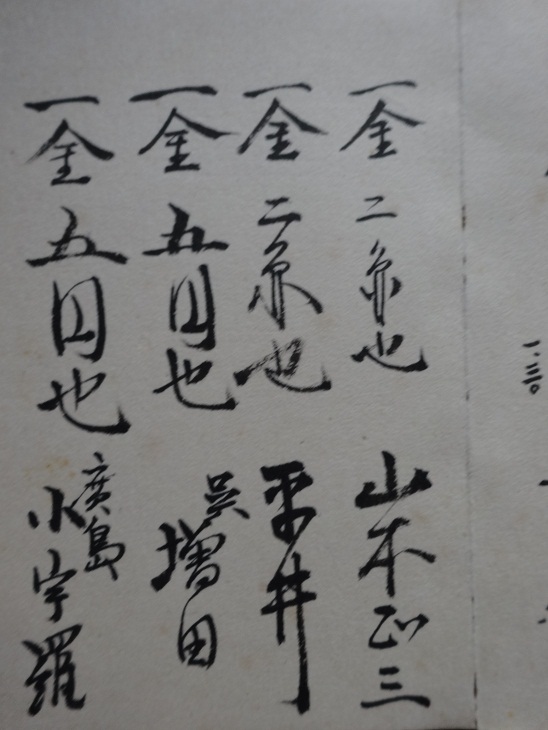 一金 二京也 山本正三
一金 二京也 平井
一金 五円也 呉 増田
一金 五円也 廣島 小宇羅